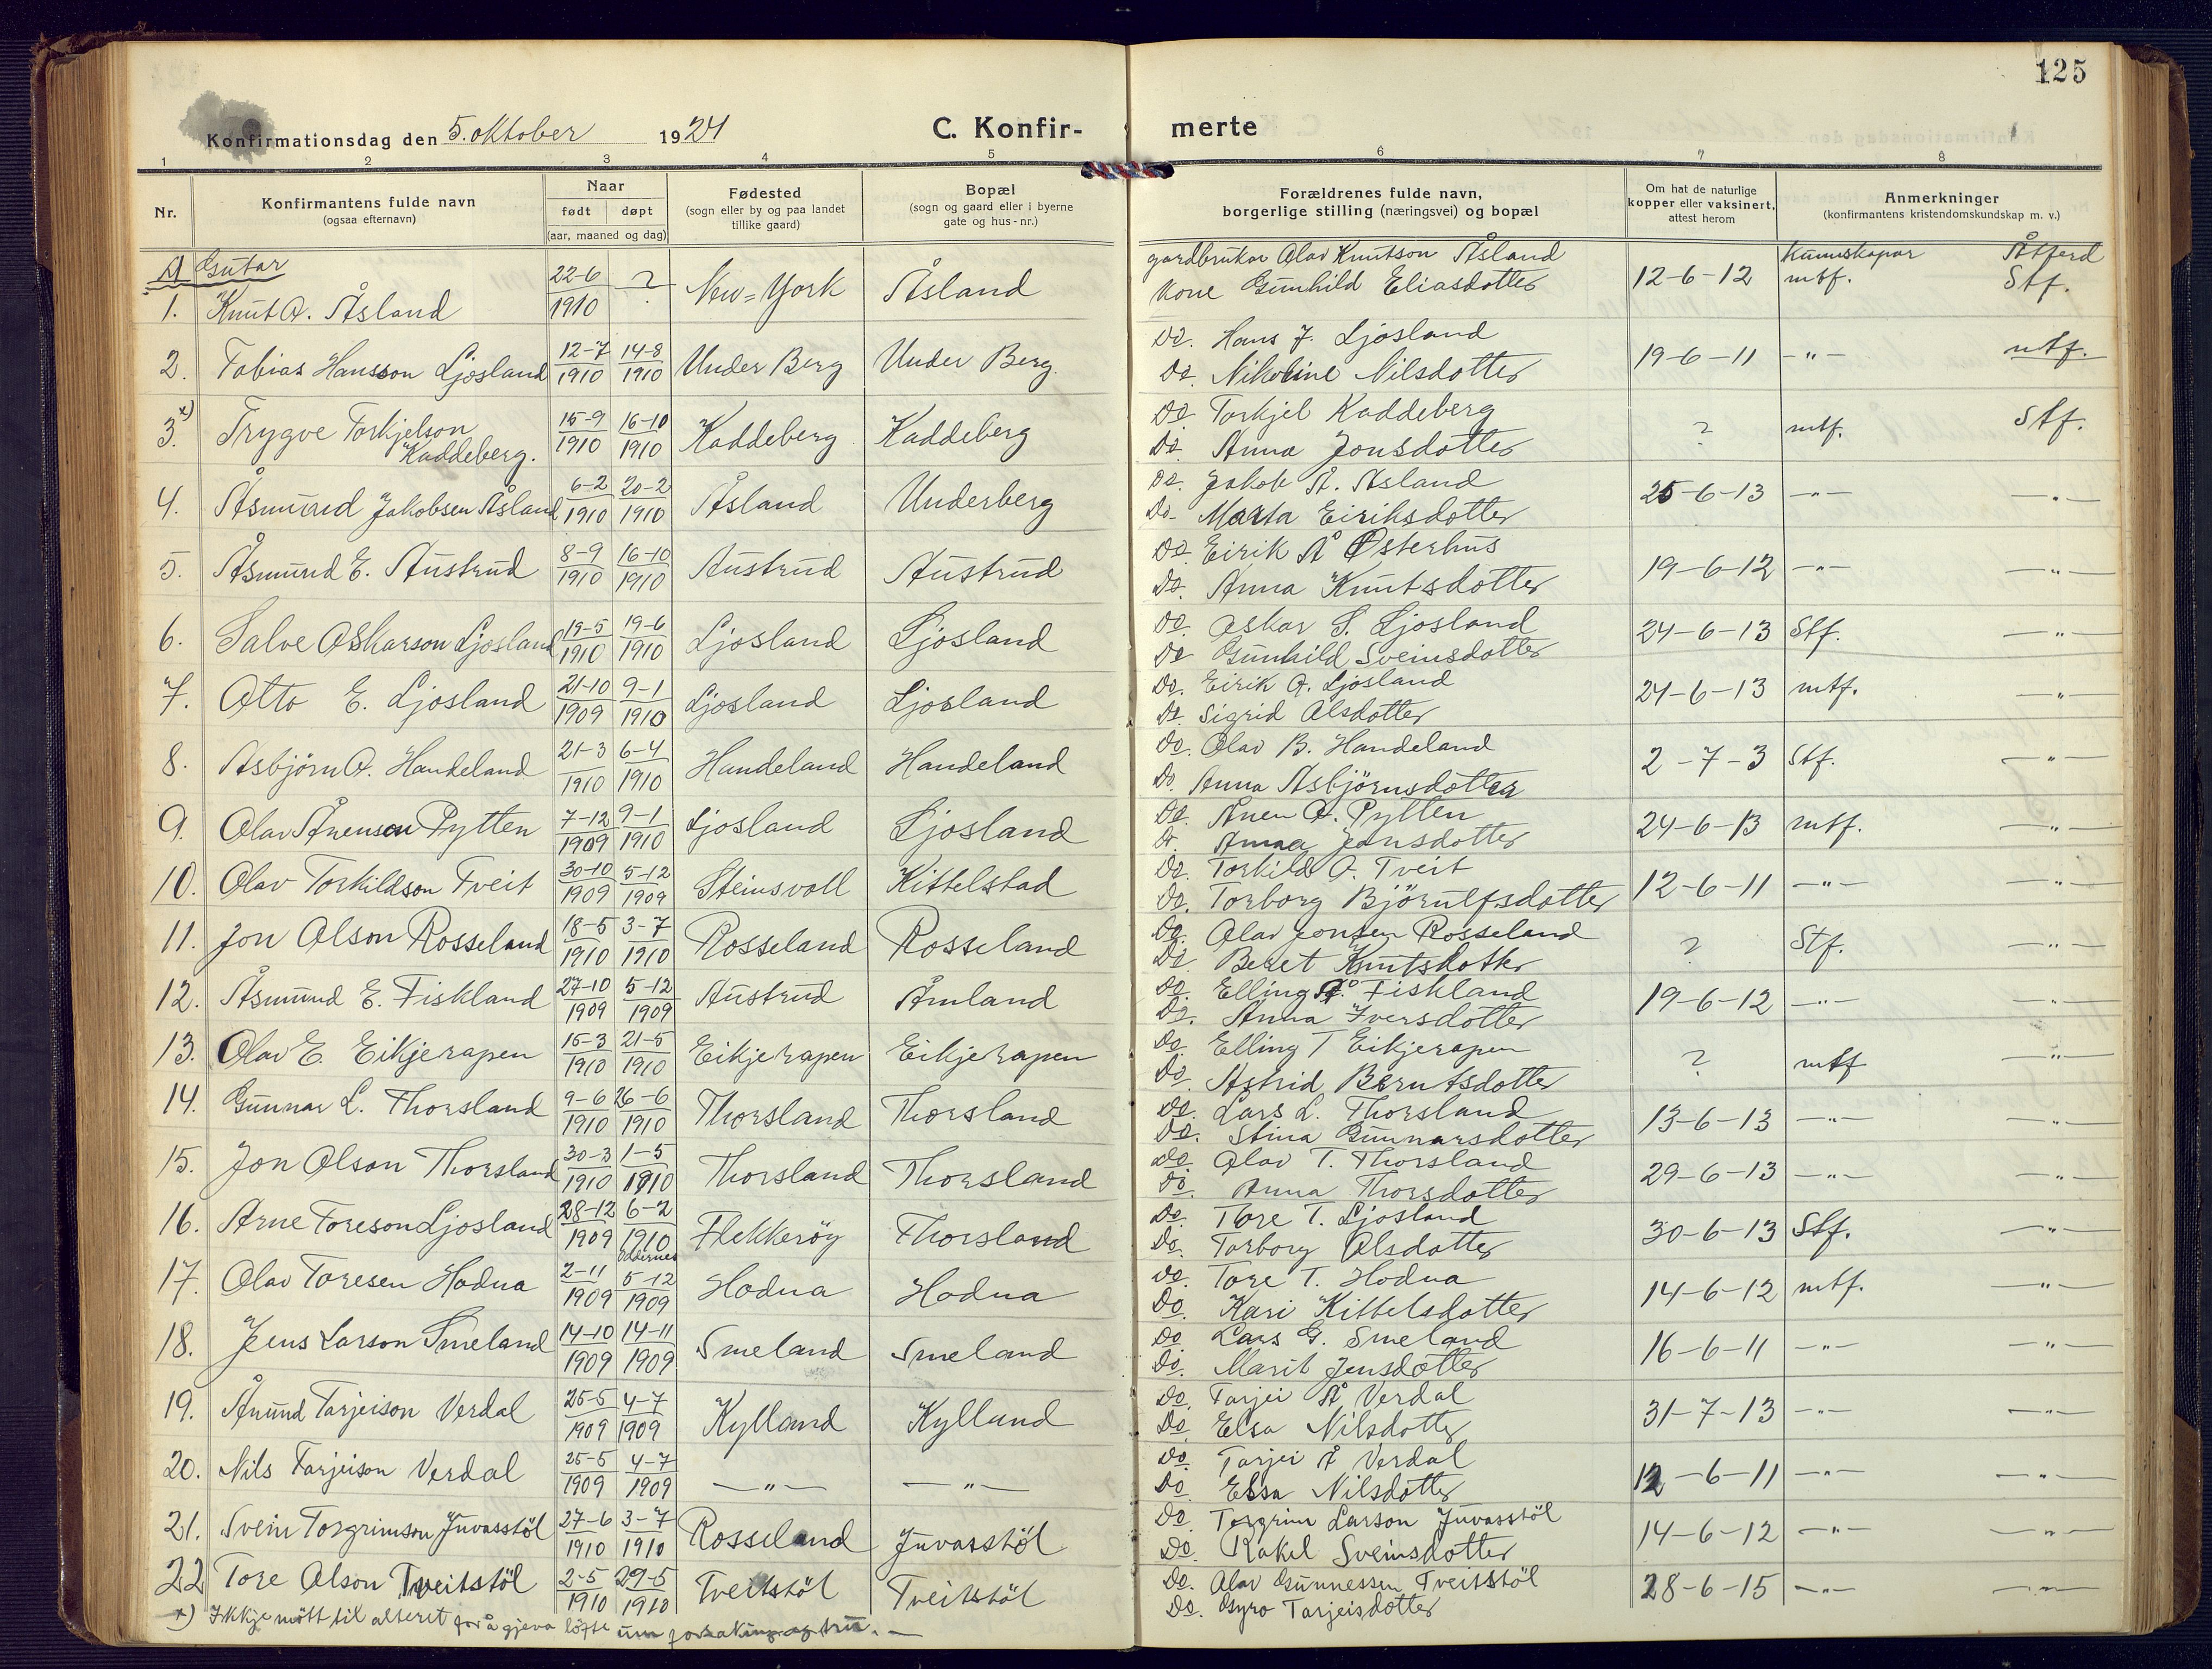 125
Konfirmationsdag den 5. oktober 1924
C. Konfir- merte
1 2 3 4 5 6 7 8
Nr.
Konfirmantens fulde navn
(ogsaa efternavn)
Naar
født døpt
(aar, maaned og dag)
Fødested
(sogn eller by og paa landet
tillike gaard)
Bopæl
(sogn og gaard eller i byerne
gate og hus-nr.)
Forældrenes fulde navn,
borgerlige stilling (næringsvei) og bopæl
Om hat de naturlige
kopper eller vaksinert,
attest herom
Anmerkninger
(konfirmantens kristendomskundskap m. v.)
A Gutar
Kunnskapar Åtferd
1. Knut O. Åsland 22-6 1910 ? New=York Åsland gardbrukar Olav Knutson Åsland 12-6-12 mtf. Stf.
kone Gunhild Eliasdotter
2. Tobias Hansson Ljosland 12-7 1910 14-8 1910 Under Berg Under Berg. Do. Hans J. Ljosland 19-6-11 -"- mtf.
Do. Nikoline Nilsdotter
3. x) Trygve Torkjelson Kaddeberg. 15-9 1910 16-10 1910 Kaddeberg Kaddeberg Do. Torkjel Kaddeberg ? mtf. Stf.
Do. Anna Jonsdotter
4. Åsmund Jakobsen Åsland 6-2 1910 20-2 1910 Åsland Underberg Do. Jakob Å. Åsland 25-6-13 -"- -"-
Do. Marta Eiriksdotter
5. Åsmund E. Austrud 8-9 1910 16-10 1910 Austrud Austrud Do. Eirik Å Østerhus 19-6-12 -"- -"-
Do. Anna Knutsdotter
6. Salve Oskarson Ljosland 19-5 1910 19-6 1910 Ljosland Ljosland Do. Oskar S. Ljosland 24-6-13 Stf. -"-
Do Gunhild Sveinsdotter
7. Otto E. Ljosland 21-10 1909 9-1 1910 Ljosland Ljosland Do. Eirik O. Ljosland 24-6-13 mtf. -"-
Do. Sigrid Olsdotter
8. Asbjörn O. Handeland 21-3 1910 6-4 1910 Handeland Handeland Do. Olav B. Handeland 2-7-3 Stf. -"-
Do. Anna Asbjörnsdotter
9. Olav Ånenson Pytten 7-12 1909 9-1 1910 Ljosland Ljosland Do. Ånen O. Pytten 24-6-13 mtf. -"-
Do. Anna Jensdotter
10. Olav Torkildson Tveit 30-10 1909 5-12 1909 Steinsvoll Kittelstad Do. Torkild O. Tveit 12-6-11 -"- -"-
Do. Torborg Björnulfsdotter
11. Jon Olson Rosseland 18-5 1910 3-7 1910 Rosseland Rosseland Do. Olav Jonsen Rosseland ? Stf. -"-
Do. Beret Knutsdotter
12. Åsmund E. Fiskland 27-10 1909 5-12 1909 Austrud Åmland Do. Elling Å. Fiskland 19-6-12 -"- -"-
Do. Anna Iversdotter
13. Olav E. Eikjerapen 15-3 1910 21-5 1910 Eikjerapen Eikjerapen Do Elling T Eikjerapen ? mtf -"-
Do. Astrid Berntsdotter
14. Gunnar L. Thorsland 9-6 1910 26-6 1910 Thorsland Thorsland Do. Lars L. Thorsland 13-6-13 -"- -"-
Do. Stina Gunnarsdotter
15. Jon Olson Thorsland 30-3 1910 1-5 1910 Thorsland Thorsland Do. Olav T. Thorsland 29-6-13 -"- -"-
Do. Anna Thorsdotter
16. Arne Toreson Ljosland 28-12 1909 6-2 1910 Oddernes Flekkeröy Thorsland Do. Tore T. Ljosland 30-6-13 Stf. -"-
Do. Torborg Olsdotter
17. Olav Toresen Hodna 2-11 1909 5-12 1909 Hodna Hodna Do. Tore T. Hodna 14-6-12 mtf. -"-
Do. Kari Kittelsdotter
18. Jens Larson Smeland 14-10 1909 14-11 1909 Smeland Smeland Do Lars G. Smeland 16-6-11 -"- -"-
Do. Marit Jensdotter
19. Ånund Tarjeison Verdal 25-5 1909 4-7 1909 Kylland Kylland Do. Tarjei Å Verdal 31-7-13 -"- -"-
Do. Elsa Nilsdotter
20. Nils Tarjeison Verdal 25-5 1909 4-7 1909 -"- -"- Do. Tarjei Å Verdal 12-6-11 -"- -"-
Do. Elsa Nilsdotter
21. Svein Torgrimson Juvasstöl 27-6 1910 3-7 1910 Rosseland Juvasstöl Do. Torgrim Larson Juvasstöl 14-6-12 -"- -"-
Do. Rakel Sveinsdotter
22 Tore Olson Tveitstöl 2-5 1910 29-5 1910 Tveitstöl Tveitstöl Do. Olav Gunnessen Tveitstöl 28-6-15 -"- -"-
Do. Gyro Tarjeisdotter
x) Ikkje mött til alteret for å gjeva löfte um forsaking og tru. -